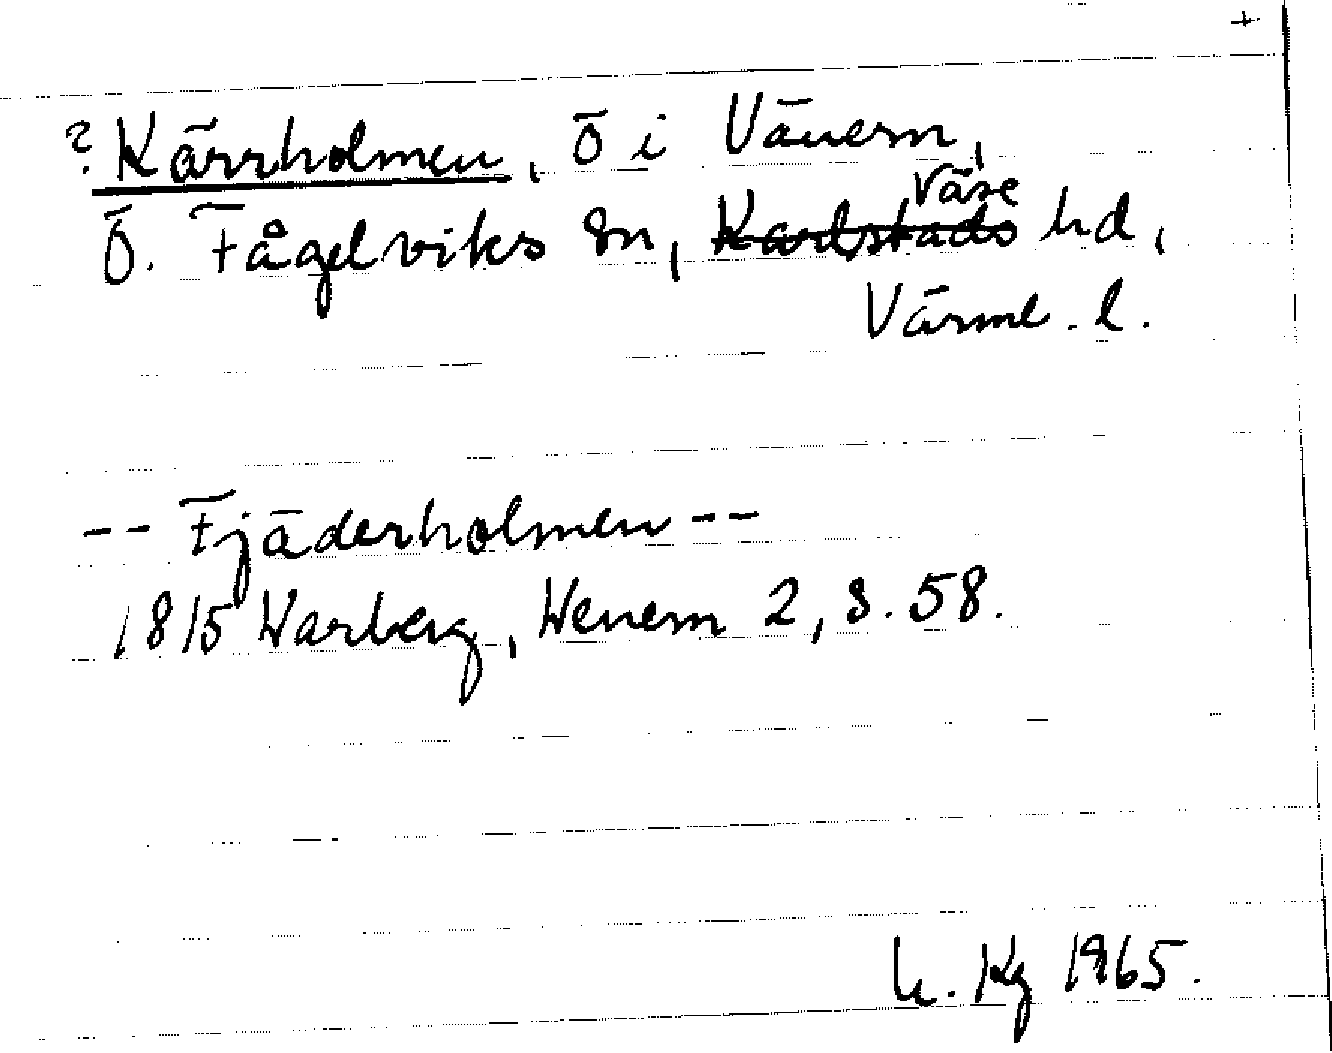 +
? Kärrholmen, ö i Vänern,
Ö. Fågelviks sn, Karlstads Väse hd,
Värml. l.
-- Fjäderholmen --
1815 Warberg, Wenern 2, s. 58.
Kg 1965.